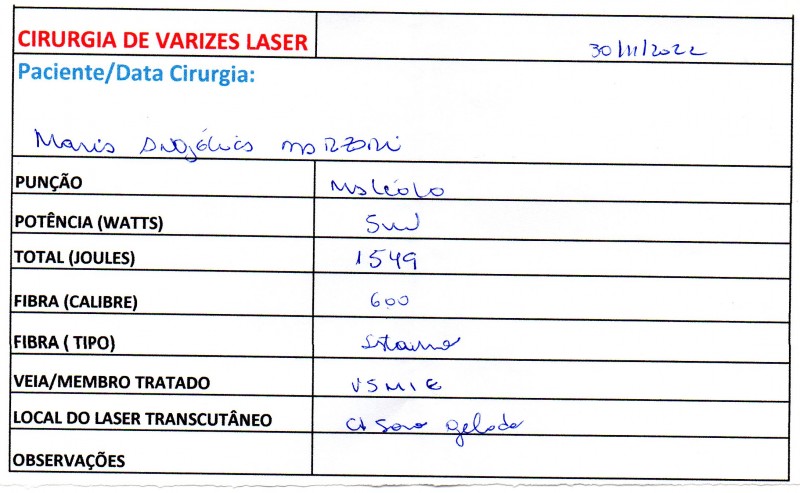 CIRURGIA DE VARIZES LASER 30/11/2022
Paciente/Data Cirurgia:
Maria Angélica Marzori
PUNÇÃO Maléolo
POTÊNCIA (WATTS) 5W
TOTAL (JOULES) 1549
FIBRA (CALIBRE) 600
FIBRA ( TIPO)
VEIA/MEMBRO TRATADO VSMIE
LOCAL DO LASER TRANSCUTÂNEO c/ soro gelado
OBSERVAÇÕES